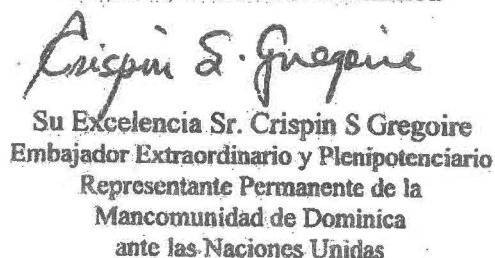 Crispin S. Gregoire
Su Excelencia Sr. Crispin S Gregoire
Embajador Extraordinario y Plenipotenciario
Representante Permanente de la
Mancomunidad de Dominica
ante las Naciones Unidas